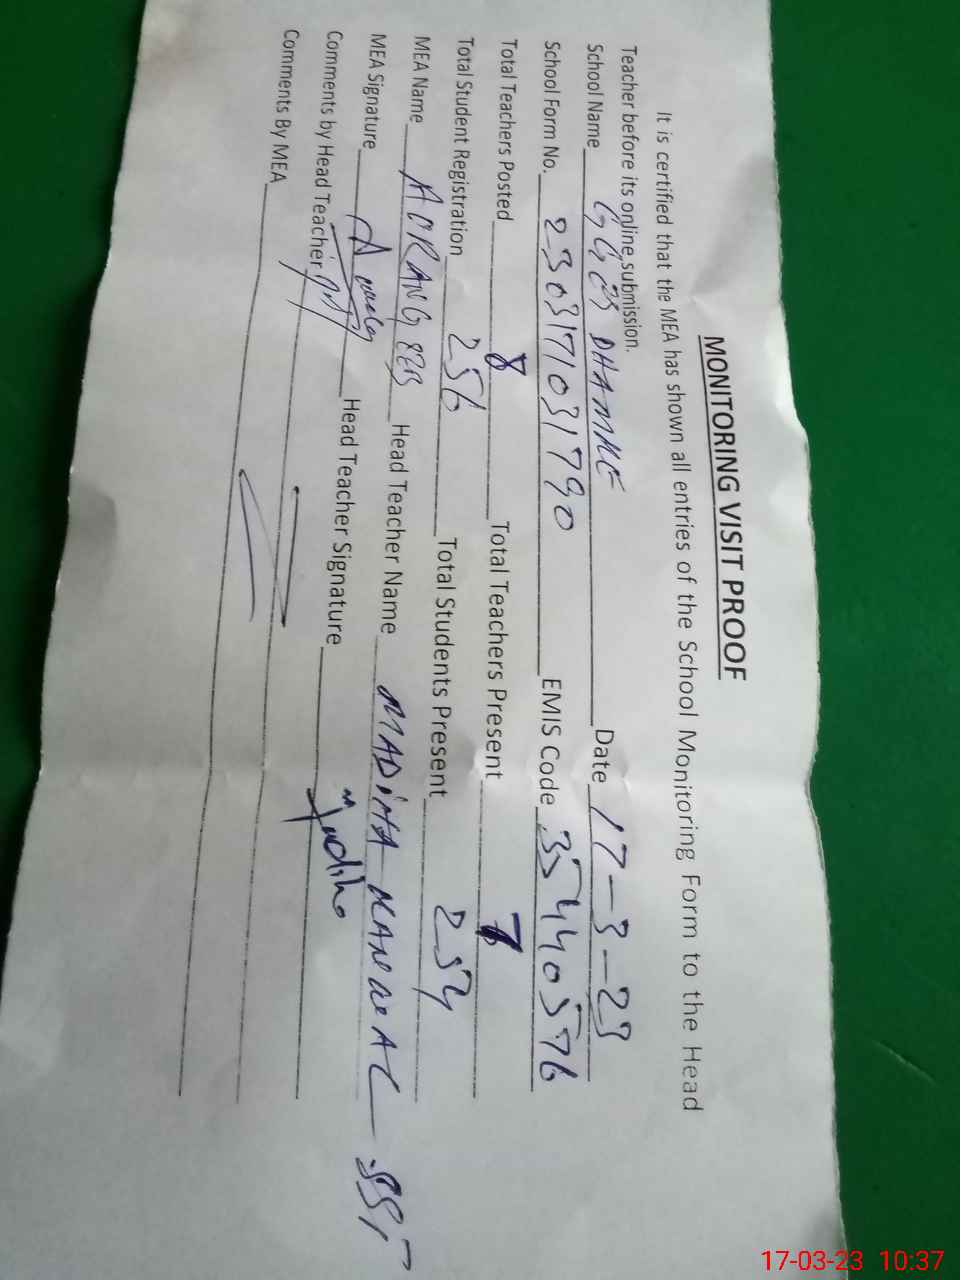 MONITORING VISIT PROOF
It is certified that the MEA has shown all entries of the School Monitoring Form to the Head
Teacher before its online submission.
School Name GGES DHAMKE Date 17-3-23
School Form No. 2303171031790 EMIS Code 35440576
Total Teachers Posted 8 Total Teachers Present 7
Total Student Registration 256 Total Students Present 254
MEA Name AORANG ZEB Head Teacher Name MADIHA SST
MEA Signature Head Teacher Signature Madiha
Comments by Head Teacher
Comments By MEA
17-03-23 10:37